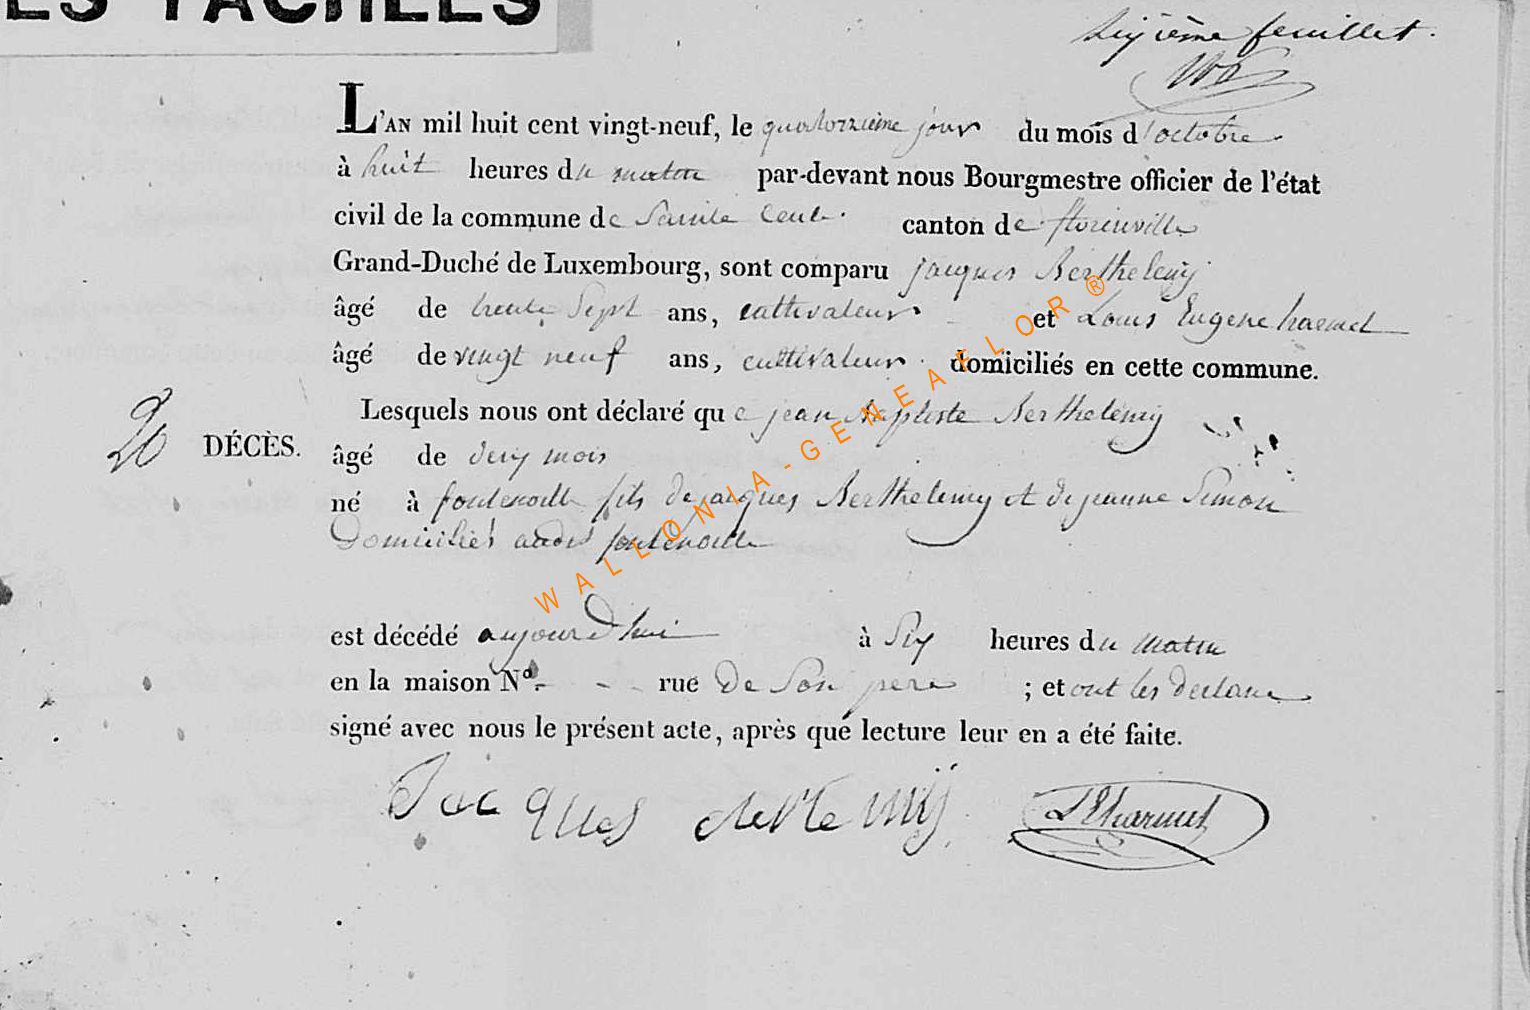 ES TACHÉES
Sixième feuillet.
L'AN mil huit cent vingt-neuf, le quatorzieme jour du mois d'octobre
à huit heures du matin par-devant nous Bourgmestre officier de l'état
civil de la commune de Sainte Cecile canton de florenville
Grand-Duché de Luxembourg, sont comparu jacques Berthelemy
âgé de trente Sept ans, cultivateur et Louis Eugene harmel
âgé de vingt neuf ans, cultivateur domiciliés en cette commune.
Lesquels nous ont déclaré que jean Baptiste Berthelemy
20 DÉCÈS.
âgé de deux mois
né à fontenoille fils de jacques Berthelemy et de jeanne Simon
Domiciliés audit fontenoille
est décédé aujourd'hui à Six heures du matin
en la maison N° - - - rue De Son pere ; et ont les declarans
signé avec nous le présent acte, après que lecture leur en a été faite.
Jacques LEharmel
WALLONIA-GENEAFLOR®